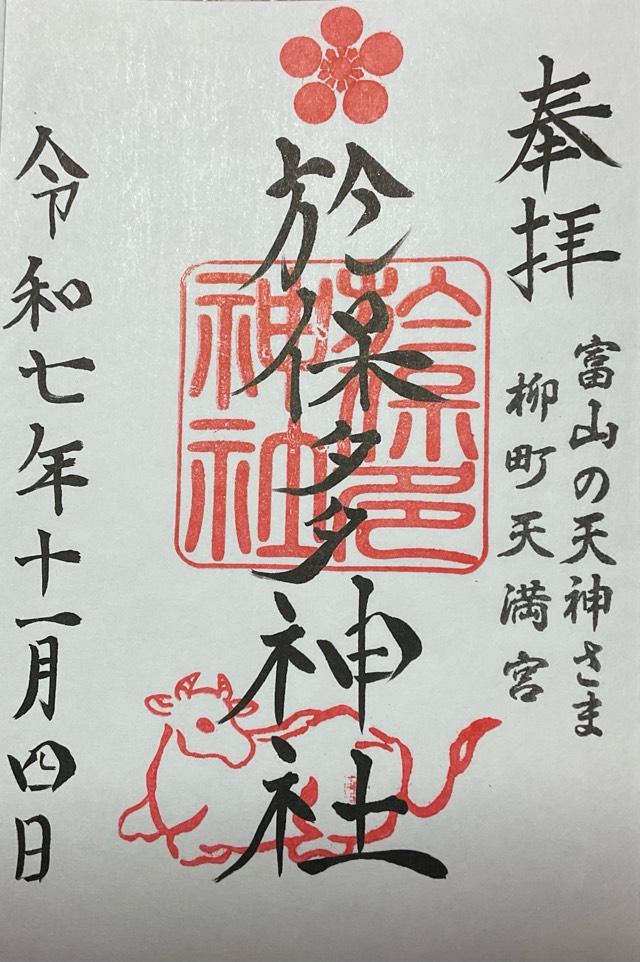 奉拝
富山の天神さま
柳町天満宮
於保多神社
令和七年十一月四日